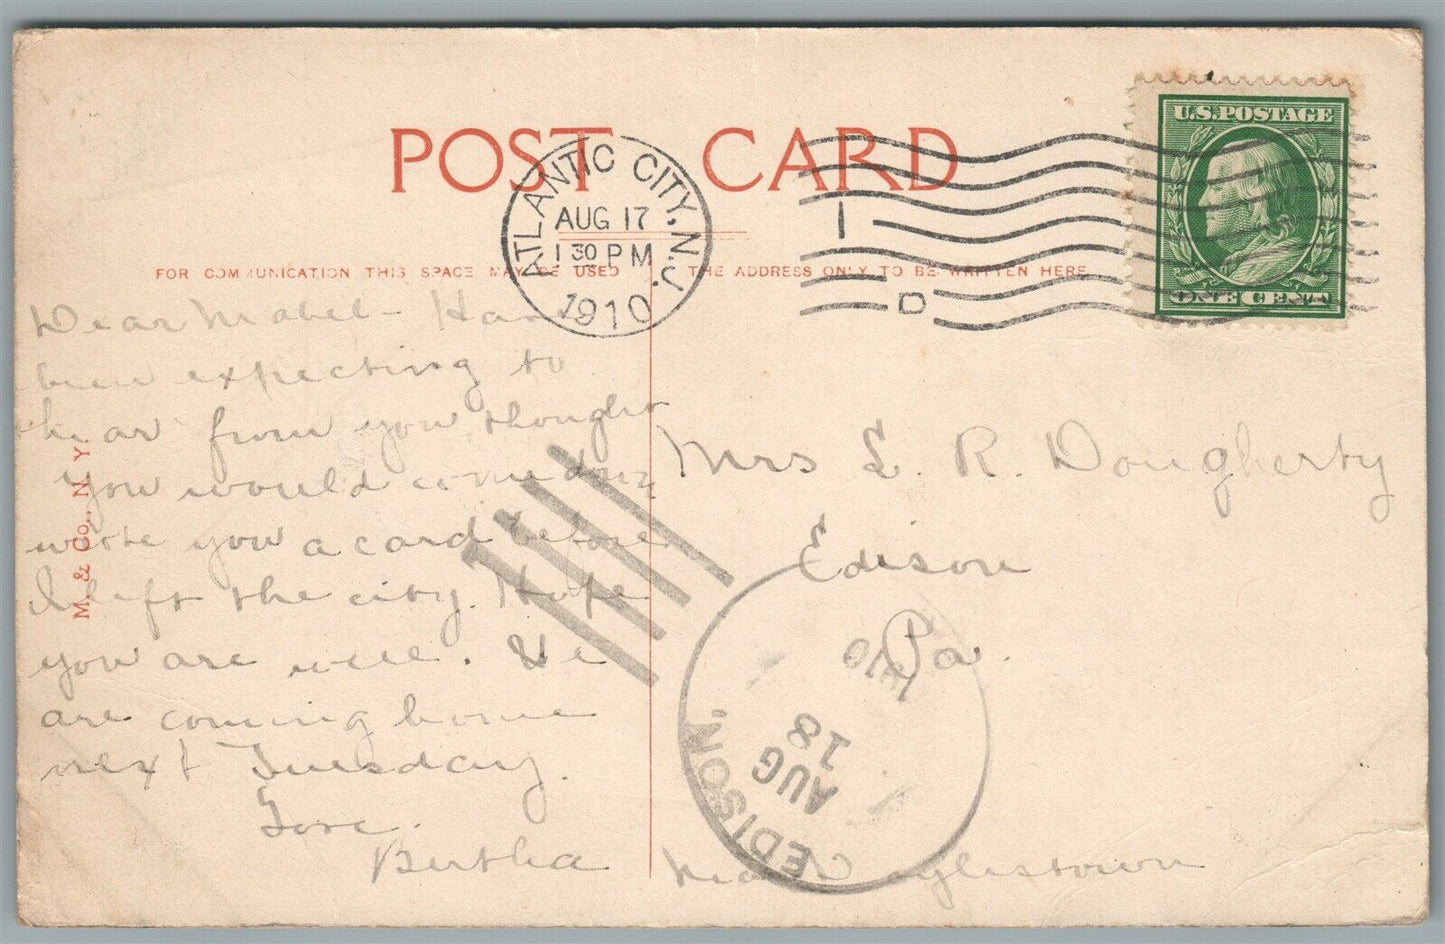 POST CARD
ATLANTIC CITY, N.J.
AUG 17
1 30 PM
1910
I
D
U.S. POSTAGE
ONE CENT
FOR COMMUNICATION THIS SPACE MAY BE USED
THE ADDRESS ONLY TO BE WRITTEN HERE
M. & Co., N. Y.
Dear Mabel - Have
been expecting to
hear from you, thought
you would come down
wrote you a card before
I left the city. Hope
you are well. We
are coming home
next Tuesday.
Love.
Bertha
Mrs E. R. Dougherty
Edison
Pa.
near
EDISON,
AUG
18
1910